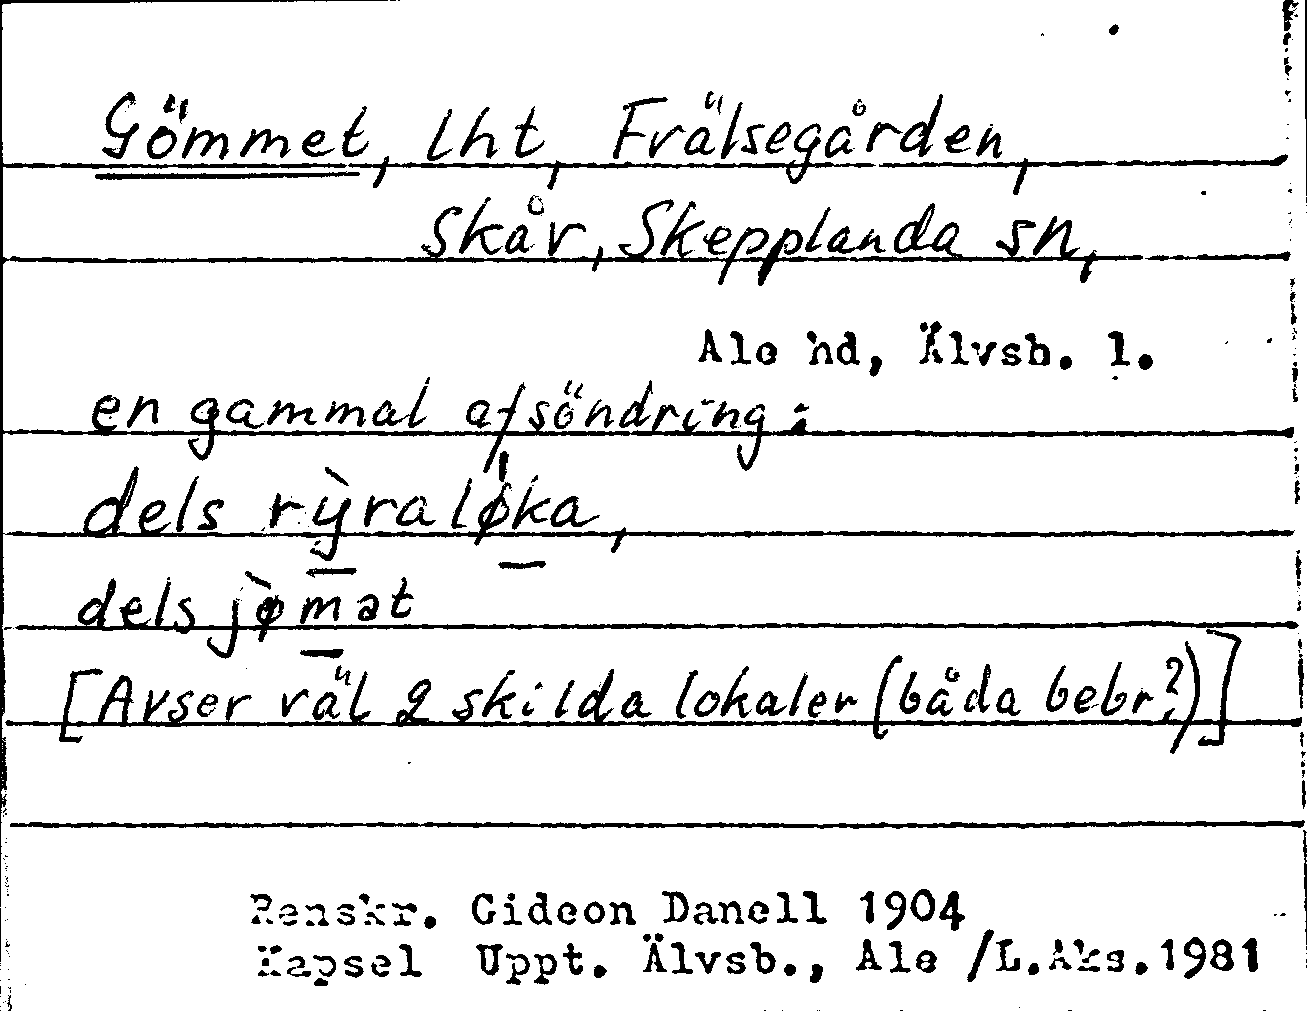 Gömmet, lht, Frälsegården,
Skår, Skepplanda sn,
Ale hd, Älvsb. l.
en gammal afsöndring:
dels rỳralø̍ka,
dels jø̀m̲ət
[Avser väl 2 skilda lokaler (båda bebr?)]
Renskr. Gideon Danell 1904
Kapsel Uppt. Älvsb., Ale /L.Aks.1981